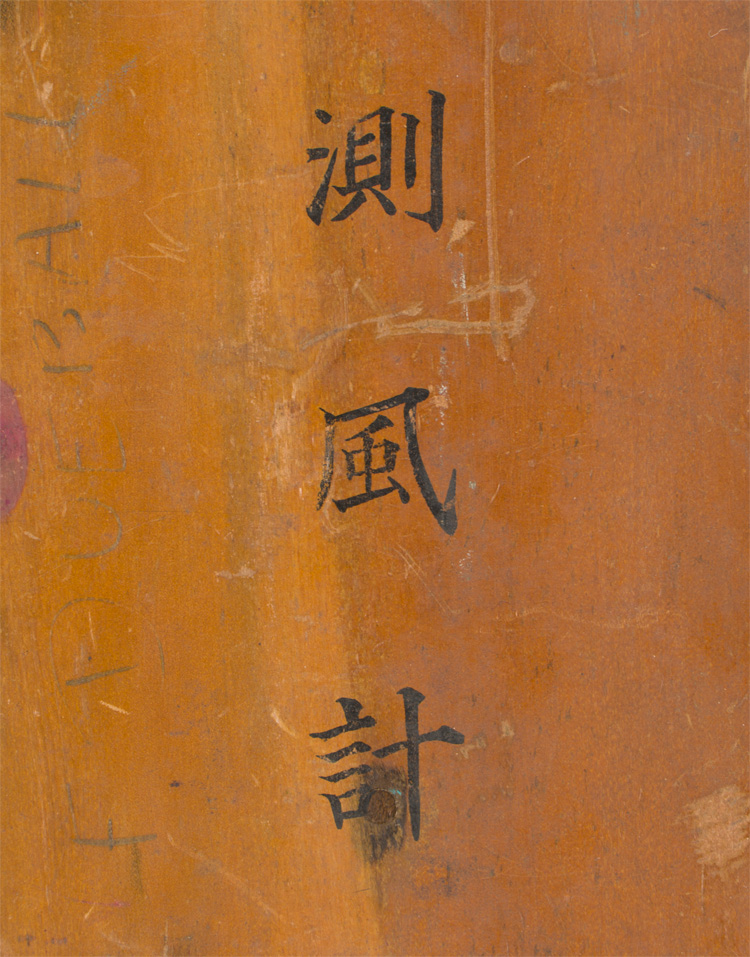 測風計
DUEBALL